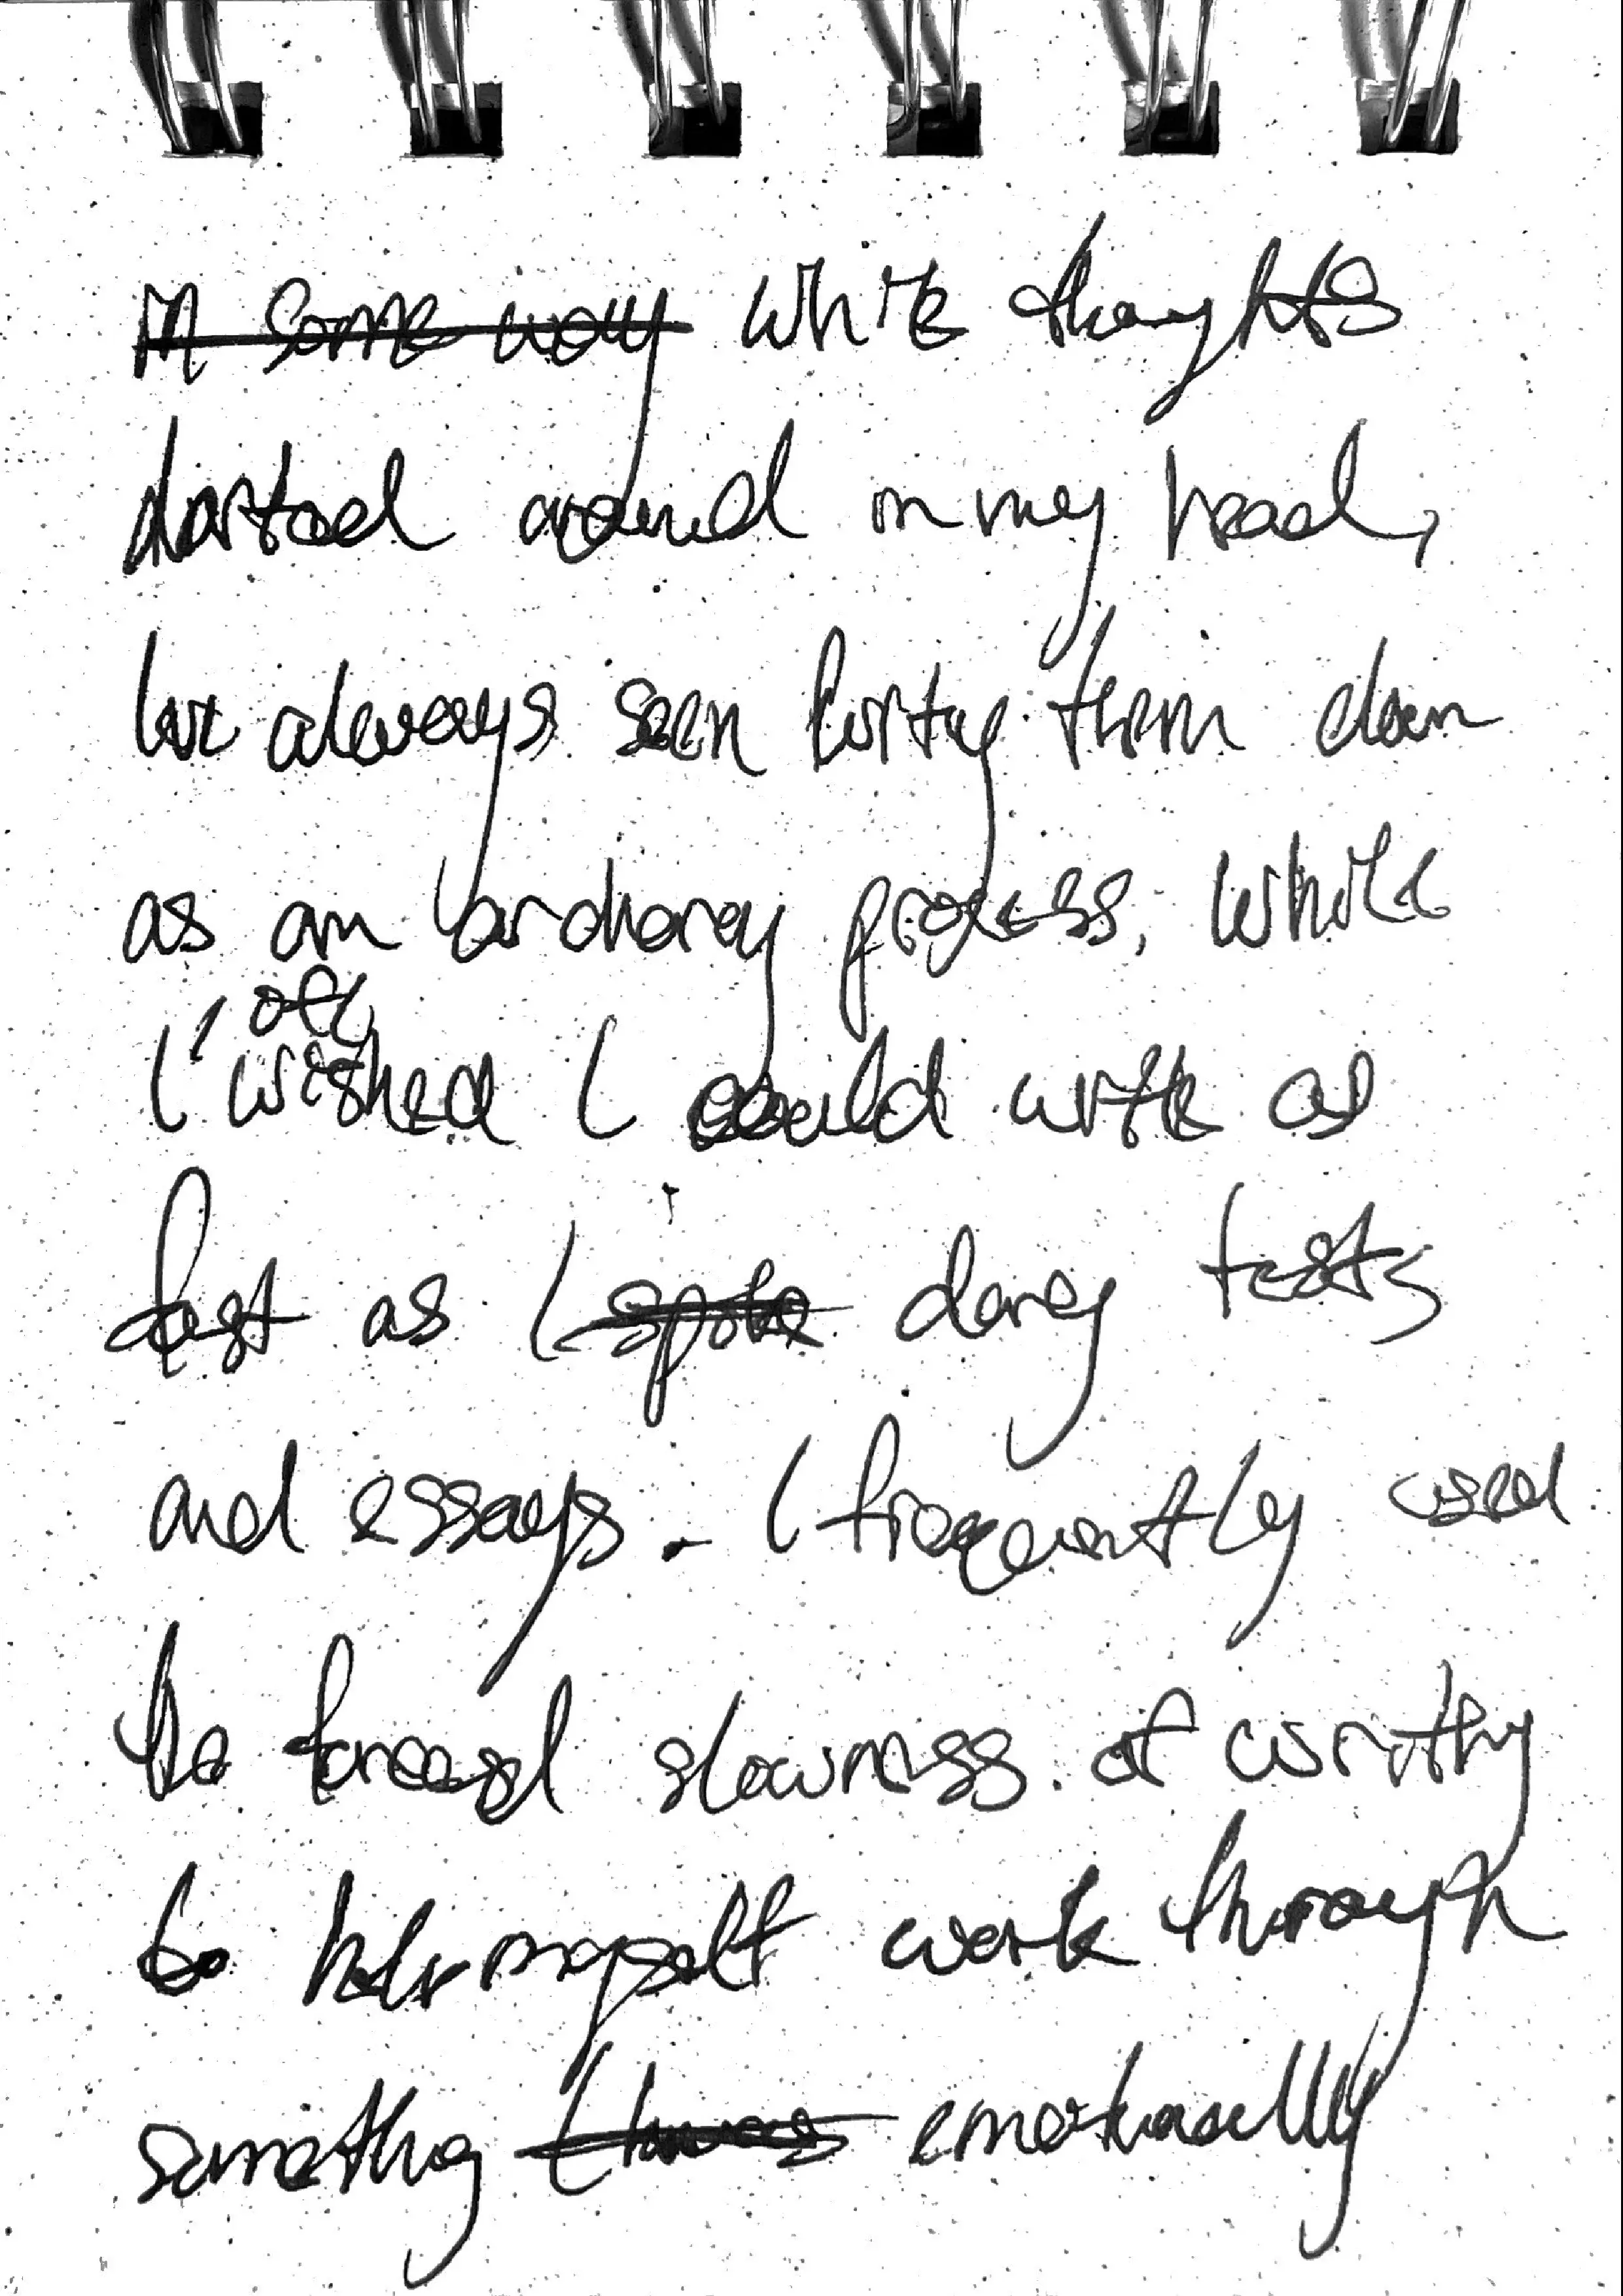 in some way while thoughts
darted around in my head,
I've always seen writing them down
as an ordinary process, while
I often
wished I could write as
fast as I spoke during tests
and essays. I frequently used
the forced slowness of writing
to help myself work through
something I was emotionally